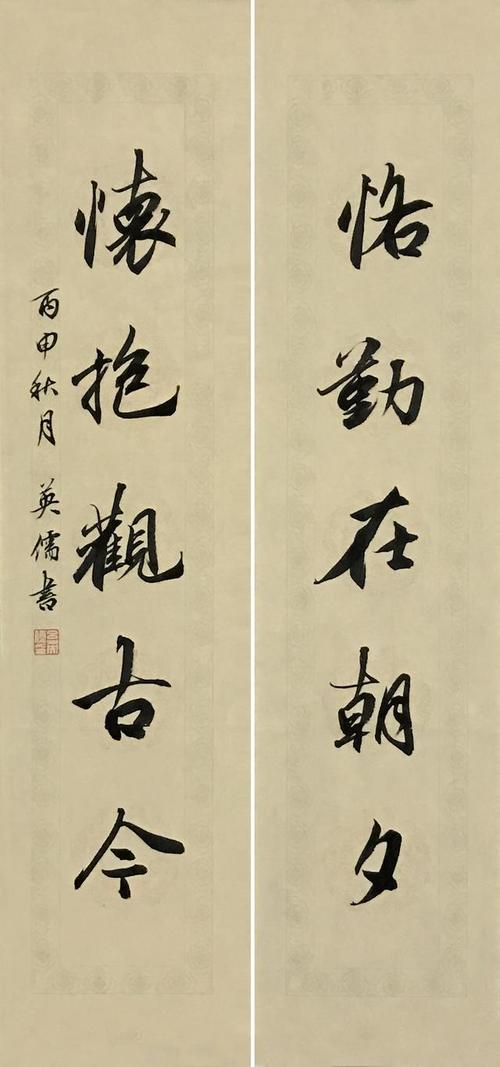 恪勤在朝夕
懷抱觀古今
丙申秋月 英儒書